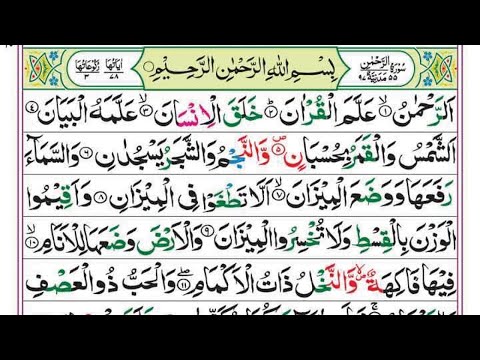 سُوْرَةُ الرَّحْمٰنِ ٥٥ مَدَنِيَّةٌ
بِسْمِ اللهِ الرَّحْمٰنِ الرَّحِيْمِ
اٰيَاتُهَا ٧٨ رُكُوْعَاتُهَا ٣
اَلرَّحْمٰنُ ۙ﴿۱﴾ عَلَّمَ الْقُرْاٰنَ ؕ﴿۲﴾ خَلَقَ الْاِنْسَانَ ۙ﴿۳﴾ عَلَّمَهُ الْبَيَانَ ﴿۴﴾
اَلشَّمْسُ وَالْقَمَرُ بِحُسْبَانٍ ۪﴿۵﴾ وَّالنَّجْمُ وَالشَّجَرُ يَسْجُدٰنِ ﴿۶﴾ وَالسَّمَآءَ
رَفَعَهَا وَوَضَعَ الْمِيْزَانَ ۙ﴿۷﴾ اَلَّا تَطْغَوْا فِى الْمِيْزَانِ ﴿۸﴾ وَاَقِيْمُوا
الْوَزْنَ بِالْقِسْطِ وَلَا تُخْسِرُوا الْمِيْزَانَ ﴿۹﴾ وَالْاَرْضَ وَضَعَهَا لِلْاَنَامِ ۙ﴿۱۰﴾
فِيْهَا فَاكِهَةٌ ۪ۙ وَّالنَّخْلُ ذَاتُ الْاَكْمَامِ ۖ﴿۱۱﴾ وَالْحَبُّ ذُو الْعَصْفِ